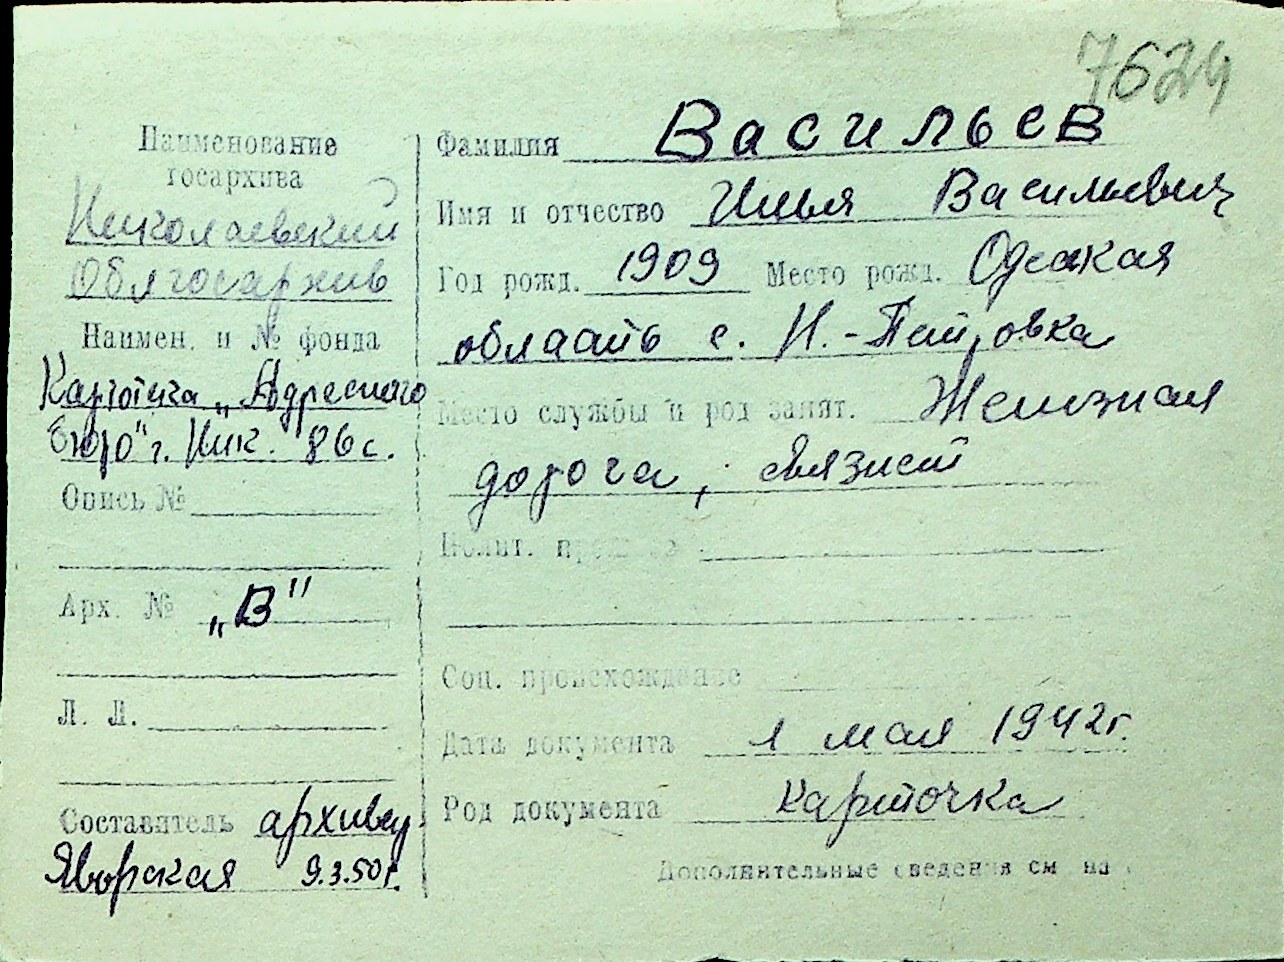 7624
Наименование
госархива
Николаевский
Облгосархив
Наимен. и № фонда
Картотека „Адресного
бюро" г. Ник. 86 с.
Опись №
Арх. № „В"
Л. Л.
Составитель архивау
Яворская 9.3.50г.
Фамилия Васильев
Имя и отчество Илья Васильевич
Год рожд. 1909 Место рожд. Одесская
область с. Н.-Петровка
Место службы и род занят. Железная
дорога, связист
Полит.
Соц. происхождение
Дата документа 1 мая 1942г.
Род документа карточка
Дополнительные сведения см на